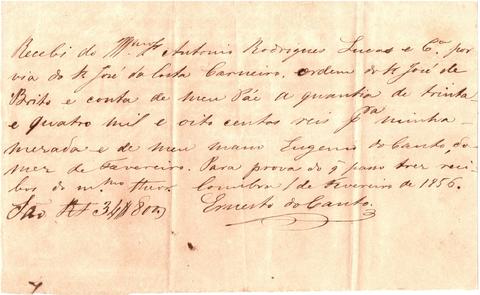 Recebi do Illmo Sr Antonio Rodrigues Lucas e Ca. por
via do Sr José da Costa Carneiro, ordem do Sr José de
Brito e conta de meu Páe a quantia de trinta
e quatro mil e oito centos reis pra minha
mezada e de meu mano Eugenio do Canto, do
mez de Fevereiro. Para prova do q passo trez reci-
bos do mmo theor. Coimbra 1 de Fevereiro de 1856.
São Rs 34$800
Ernesto do Canto.